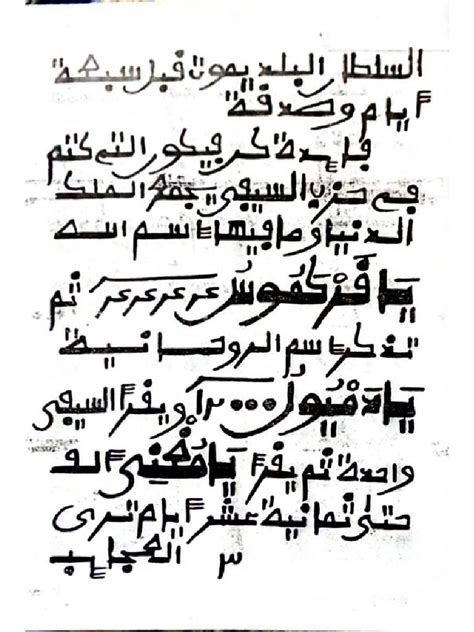 السلطان البلد يموت قبل سبعة
ايام وصدقة
فايدة كرفيكور التي كتم
في حزب السيفي يجعله الملك
الدنيا وما فيها اسم الله
يا فَرْكَمُوسُ ثم
تذكر اسم الروحانية
ويقرأ السيفي
واحدة ثم يقرأ يا مُغْنِي الف
حتى ثمانية عشر ايام ترى
العجايب ٣